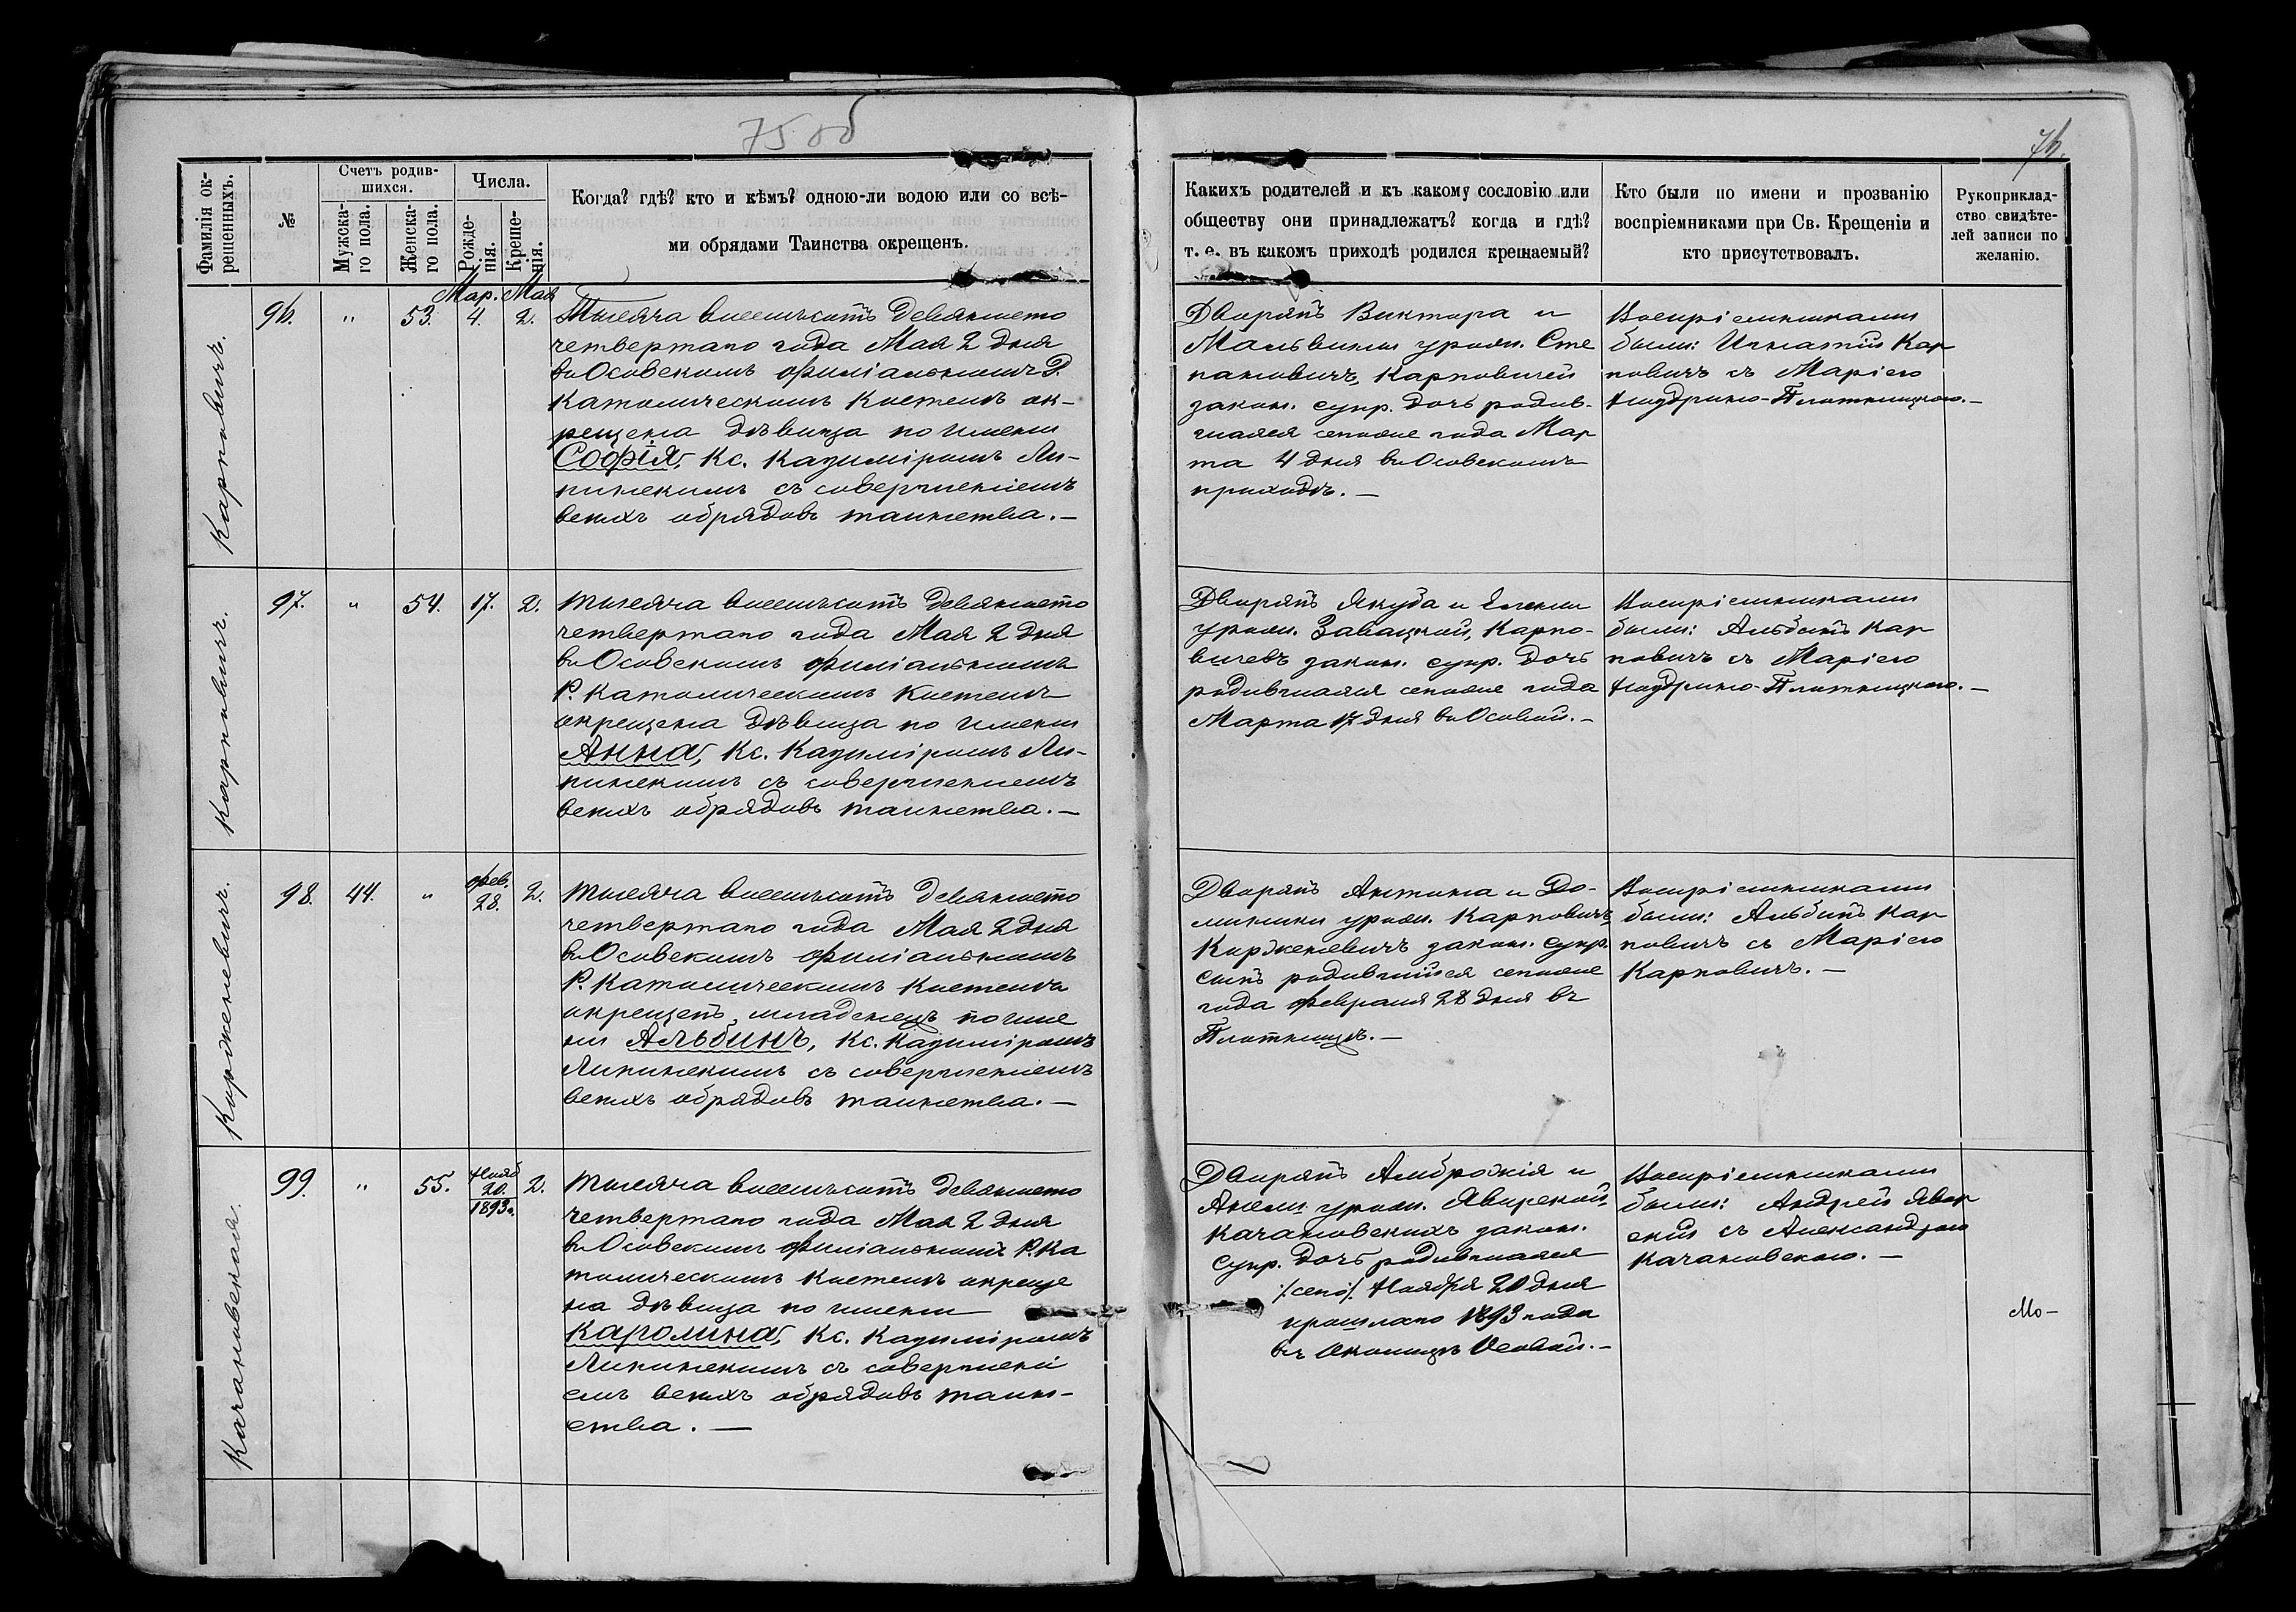 75 об
76.
Фамилія ок-
рещенныхъ.
№
Счетъ родив-
шихся.
Мужска-
го пола.
Женска-
го пола.
Числа.
Рожде-
нія.
Креще-
нія.
Когда? гдѣ? кто и кѣмъ? одною-ли водою или со всѣ-
ми обрядами Таинства окрещенъ.
Какихъ родителей и къ какому сословію или
обществу они принадлежатъ? когда и гдѣ?
т. е. въ какомъ приходѣ родился крещаемый?
Кто были по имени и прозванію
воспріемниками при Св. Крещеніи и
кто присутствовалъ.
Рукоприклад-
ство свидѣте-
лей записи по
желанію.
Карповичъ.
96. " 53. Мар. 4. Мая 2.
Тысяча восемьсотъ девяносто
четвертаго года Мая 2 дня
въ Осовскомъ филіальномъ Р.
Католическомъ Костелѣ ок-
рещена дѣвица по имени
Софія, Кс. Казиміромъ Ли-
пинскимъ съ совершеніемъ
всѣхъ обрядовъ таинства. —
Дворянъ Виктора и
Мальвины урожд. Сте
пановичъ, Карповичей
закон. супр. дочь родив-
шаяся сегоже года Мар
та 4 дня въ Осовскомъ
приходѣ. —
Воспріемниками
были: Игнатій Кар
повичъ съ Маріею
Ширмо-Плотницкою. —
Карповичъ.
97. " 54. 17. 2.
Тысяча восемьсотъ девяносто
четвертаго года Мая 2 дня
въ Осовскомъ филіальномъ
Р. Католическомъ Костелѣ
окрещена дѣвица по имени
Анна, Кс. Казиміромъ Ли-
пинскимъ съ совершеніемъ
всѣхъ обрядовъ таинства. —
Дворянъ Якуба и Елены
урожд. Завацкой, Карпо-
вичевъ закон. супр. дочь
родившаяся сегоже года
Марта 17 дня въ Осовой. —
Воспріемниками
были: Альбинъ Кар
повичъ съ Маріею
Карженевичъ.
98. 44. " Фев. 28. 2.
Тысяча восемьсотъ девяносто
четвертаго года Мая 2 дня
въ Осовскомъ филіальномъ
Р. Католическомъ Костелѣ
окрещенъ младенецъ по име
ни Альбинъ, Кс. Казиміромъ
Липинскимъ съ совершеніемъ
всѣхъ обрядовъ таинства. —
Дворянъ Антона и До-
миники урожд. Карповичъ
Корженевичъ закон. супр.
сынъ родившійся сегоже
года февраля 28 дня въ
Плотницѣ. —
Воспріемниками
были: Альбинъ Кар
повичъ съ Маріею
Карповичъ. —
Качановская.
99. " 55. Нояб 20. 1893 г. 2.
Тысяча восемьсотъ девяносто
четвертаго года Мая 2 дня
въ Осовскомъ филіальномъ Р. Ка
толическомъ Костелѣ окреще
на дѣвица по имени
Каролина, Кс. Казиміромъ
Липинскимъ съ совершені
емъ всѣхъ обрядовъ таин-
ства. —
Дворянъ Амброжія и
Анели урожд. Яворской,
Качановскихъ закон.
супр. дочь родившаяся
/сего/ Ноября 20 дня
прошлаго 1893 года
въ Околицѣ Осовой. —
Воспріемниками
были: Андрей Явор
скій съ Александрою
Качановскою. —
Мо-